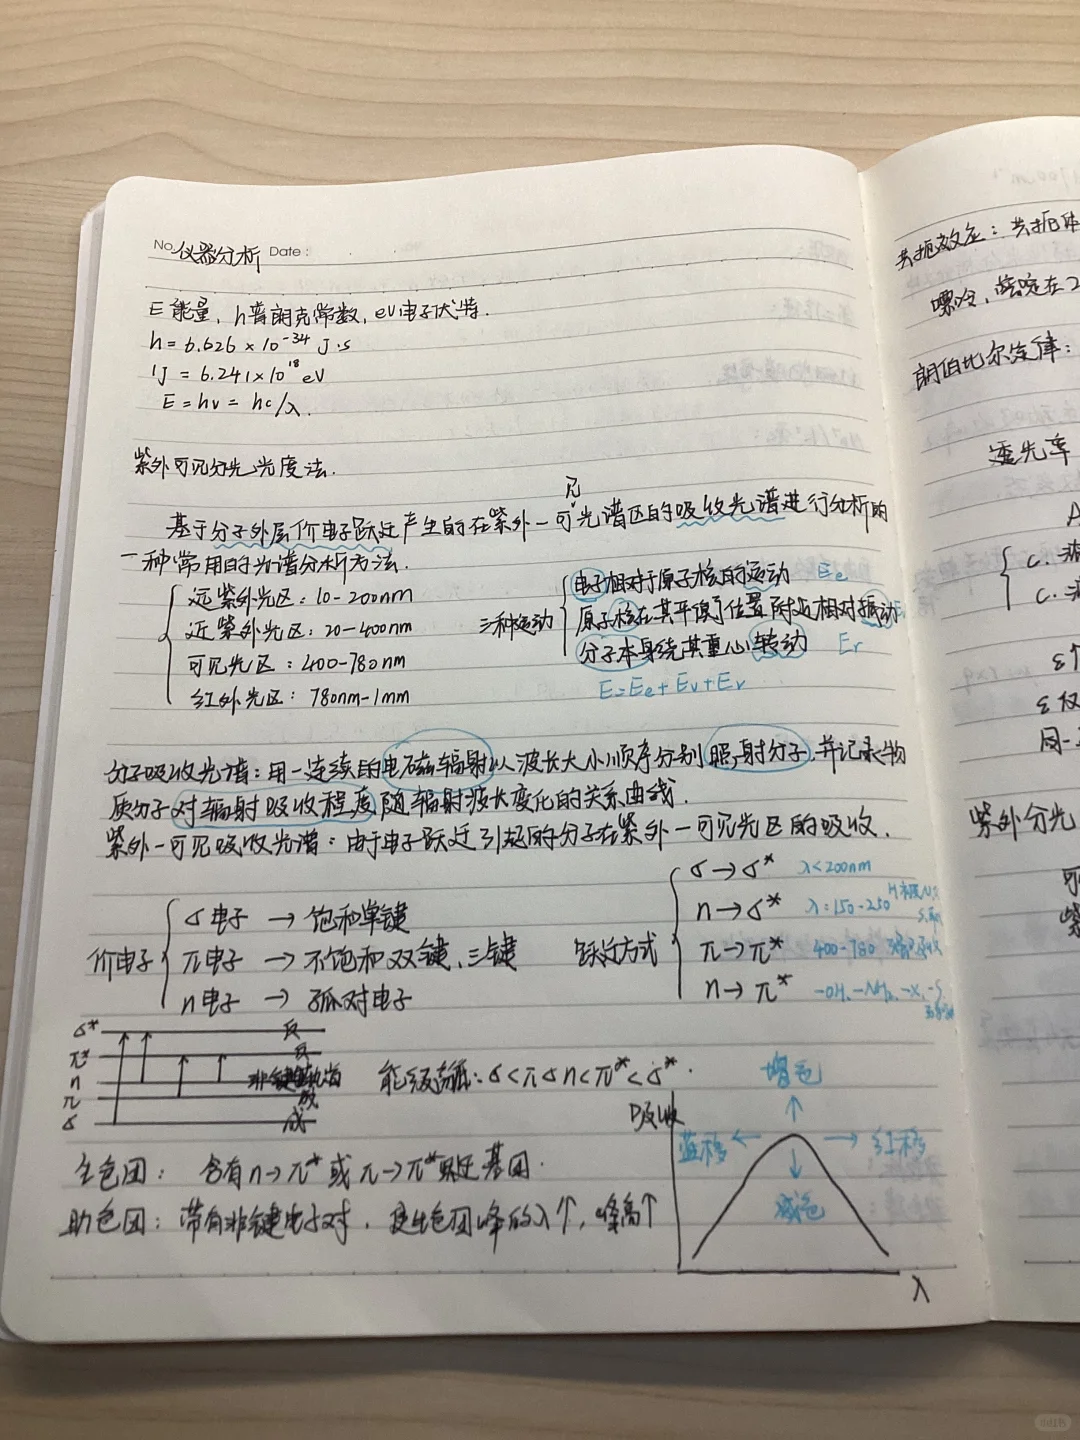 No. 仪器分析 Date:
E能量, h普朗克常数, eV电子伏特.
h = 6.626×10⁻³⁴ J·s
1J = 6.241×10¹⁸ eV
E = hv = hc/λ.
紫外可见分光光度法.
基于分子外层价电子跃迁产生的在紫外—可见光谱区的吸收光谱进行分析的
一种常用的光谱分析方法.
远紫外光区: 10-200nm
近紫外光区: 20-400nm
可见光区: 400-780nm
红外光区: 780nm-1mm
三种运动
电子相对于原子核的运动 Ee
原子核在其平衡位置附近相对振动
分子本身绕其重心转动 Er
E=Ee+Ev+Er
分子吸收光谱: 用一连续的电磁辐射以波长大小顺序分别照射分子, 并记录物
质分子对辐射吸收程度随辐射波长变化的关系曲线.
紫外—可见吸收光谱: 由于电子跃迁引起的分子在紫外—可见光区的吸收.
价电子
σ电子 → 饱和单键
π电子 → 不饱和双键、三键
n电子 → 孤对电子
跃迁方式
σ→σ* λ<200nm
n→σ* λ:150-250
π→π* 400-780
n→π* -OH、-NH₂、-X、-S
σ* 反
π* 反
n 非键轨道
π 成
σ 成
能级高低: σ<π<n<π*<σ*.
生色团: 含有n→π*或π→π*跃迁基团.
助色团: 带有非键电子对, 使生色团峰的λ↑, 峰高↑
吸收
增色
蓝移 ← → 红移
减色
λ
共轭效应: 共轭体
嘌呤, 嘧啶在2
朗伯比尔定律:
透光率
A
c.
c.
ε
ε
同一
紫外分光
小红书